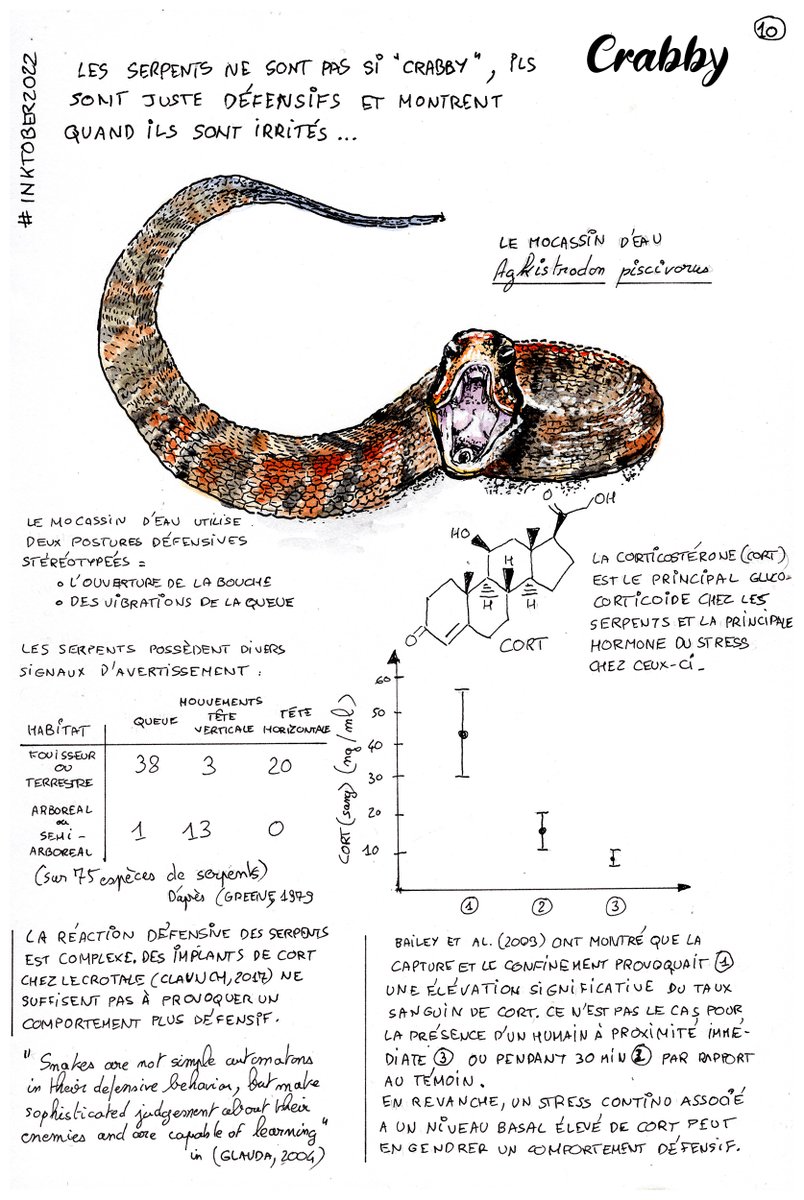 10
Crabby
#INKTOBER2022
LES SERPENTS NE SONT PAS SI "CRABBY", ILS
SONT JUSTE DÉFENSIFS ET MONTRENT
QUAND ILS SONT IRRITÉS ...
LE MOCASSIN D'EAU
Agkistrodon piscivorus
LE MOCASSIN D'EAU UTILISE
DEUX POSTURES DÉFENSIVES
STÉRÉOTYPEÉS =
o L'OUVERTURE DE LA BOUCHE
o DES VIBRATIONS DE LA QUEUE
O
OH
HO
H
H
H
O
CORT
LA CORTICOSTÉRONE (CORT)
EST LE PRINCIPAL GLUCO-
CORTICOIDE CHEZ LES
SERPENTS ET LA PRINCIPALE
HORMONE DU STRESS
CHEZ CEUX-CI_
LES SERPENTS POSSÈDENT DIVERS
SIGNAUX D'AVERTISSEMENT :
MOUVEMENTS
HABITAT QUEUE TÊTE VERTICALE TÊTE HORIZONTALE
FOUISSEUR OU TERRESTRE 38 3 20
ARBOREAL ou SEMI-ARBOREAL 1 13 0
(sur 75 espèces de serpents)
D'après (GREENE, 1979
CORT (sang) (ng/ml)
60
50
40
30
20
10
1 2 3
LA RÉACTION DÉFENSIVE DES SERPENTS
EST COMPLEXE. DES IMPLANTS DE CORT
CHEZ LE CROTALE (CLAUNCH, 2017) NE
SUFFISENT PAS À PROVOQUER UN
COMPORTEMENT PLUS DÉFENSIF.
"Snakes are not simple automatons
in their defensive behavior, but make
sophisticated judgement about their
enemies and are capable of learning"
in (GLAUDA, 2004)
BAILEY ET AL. (2009) ONT MONTRÉ QUE LA
CAPTURE ET LE CONFINEMENT PROVOQUAIT 1
UNE ÉLÉVATION SIGNIFICATIVE DU TAUX
SANGUIN DE CORT. CE N'EST PAS LE CAS POUR
LA PRÉSENCE D'UN HUMAIN À PROXIMITÉ IMMÉ-
DIATE 3 OU PENDANT 30 MIN 2 PAR RAPPORT
AU TÉMOIN.
EN REVANCHE, UN STRESS CONTINO ASSOCIÉ
A UN NIVEAU BASAL ÉLEVÉ DE CORT PEUT
ENGENDRER UN COMPORTEMENT DÉFENSIF.